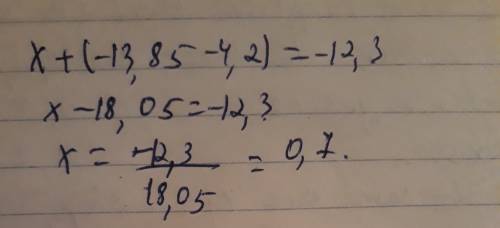 x + (-13,85 - 4,2) = -12,3
x - 18,05 = -12,3
x = -12,3 / 18,05 = 0,7.